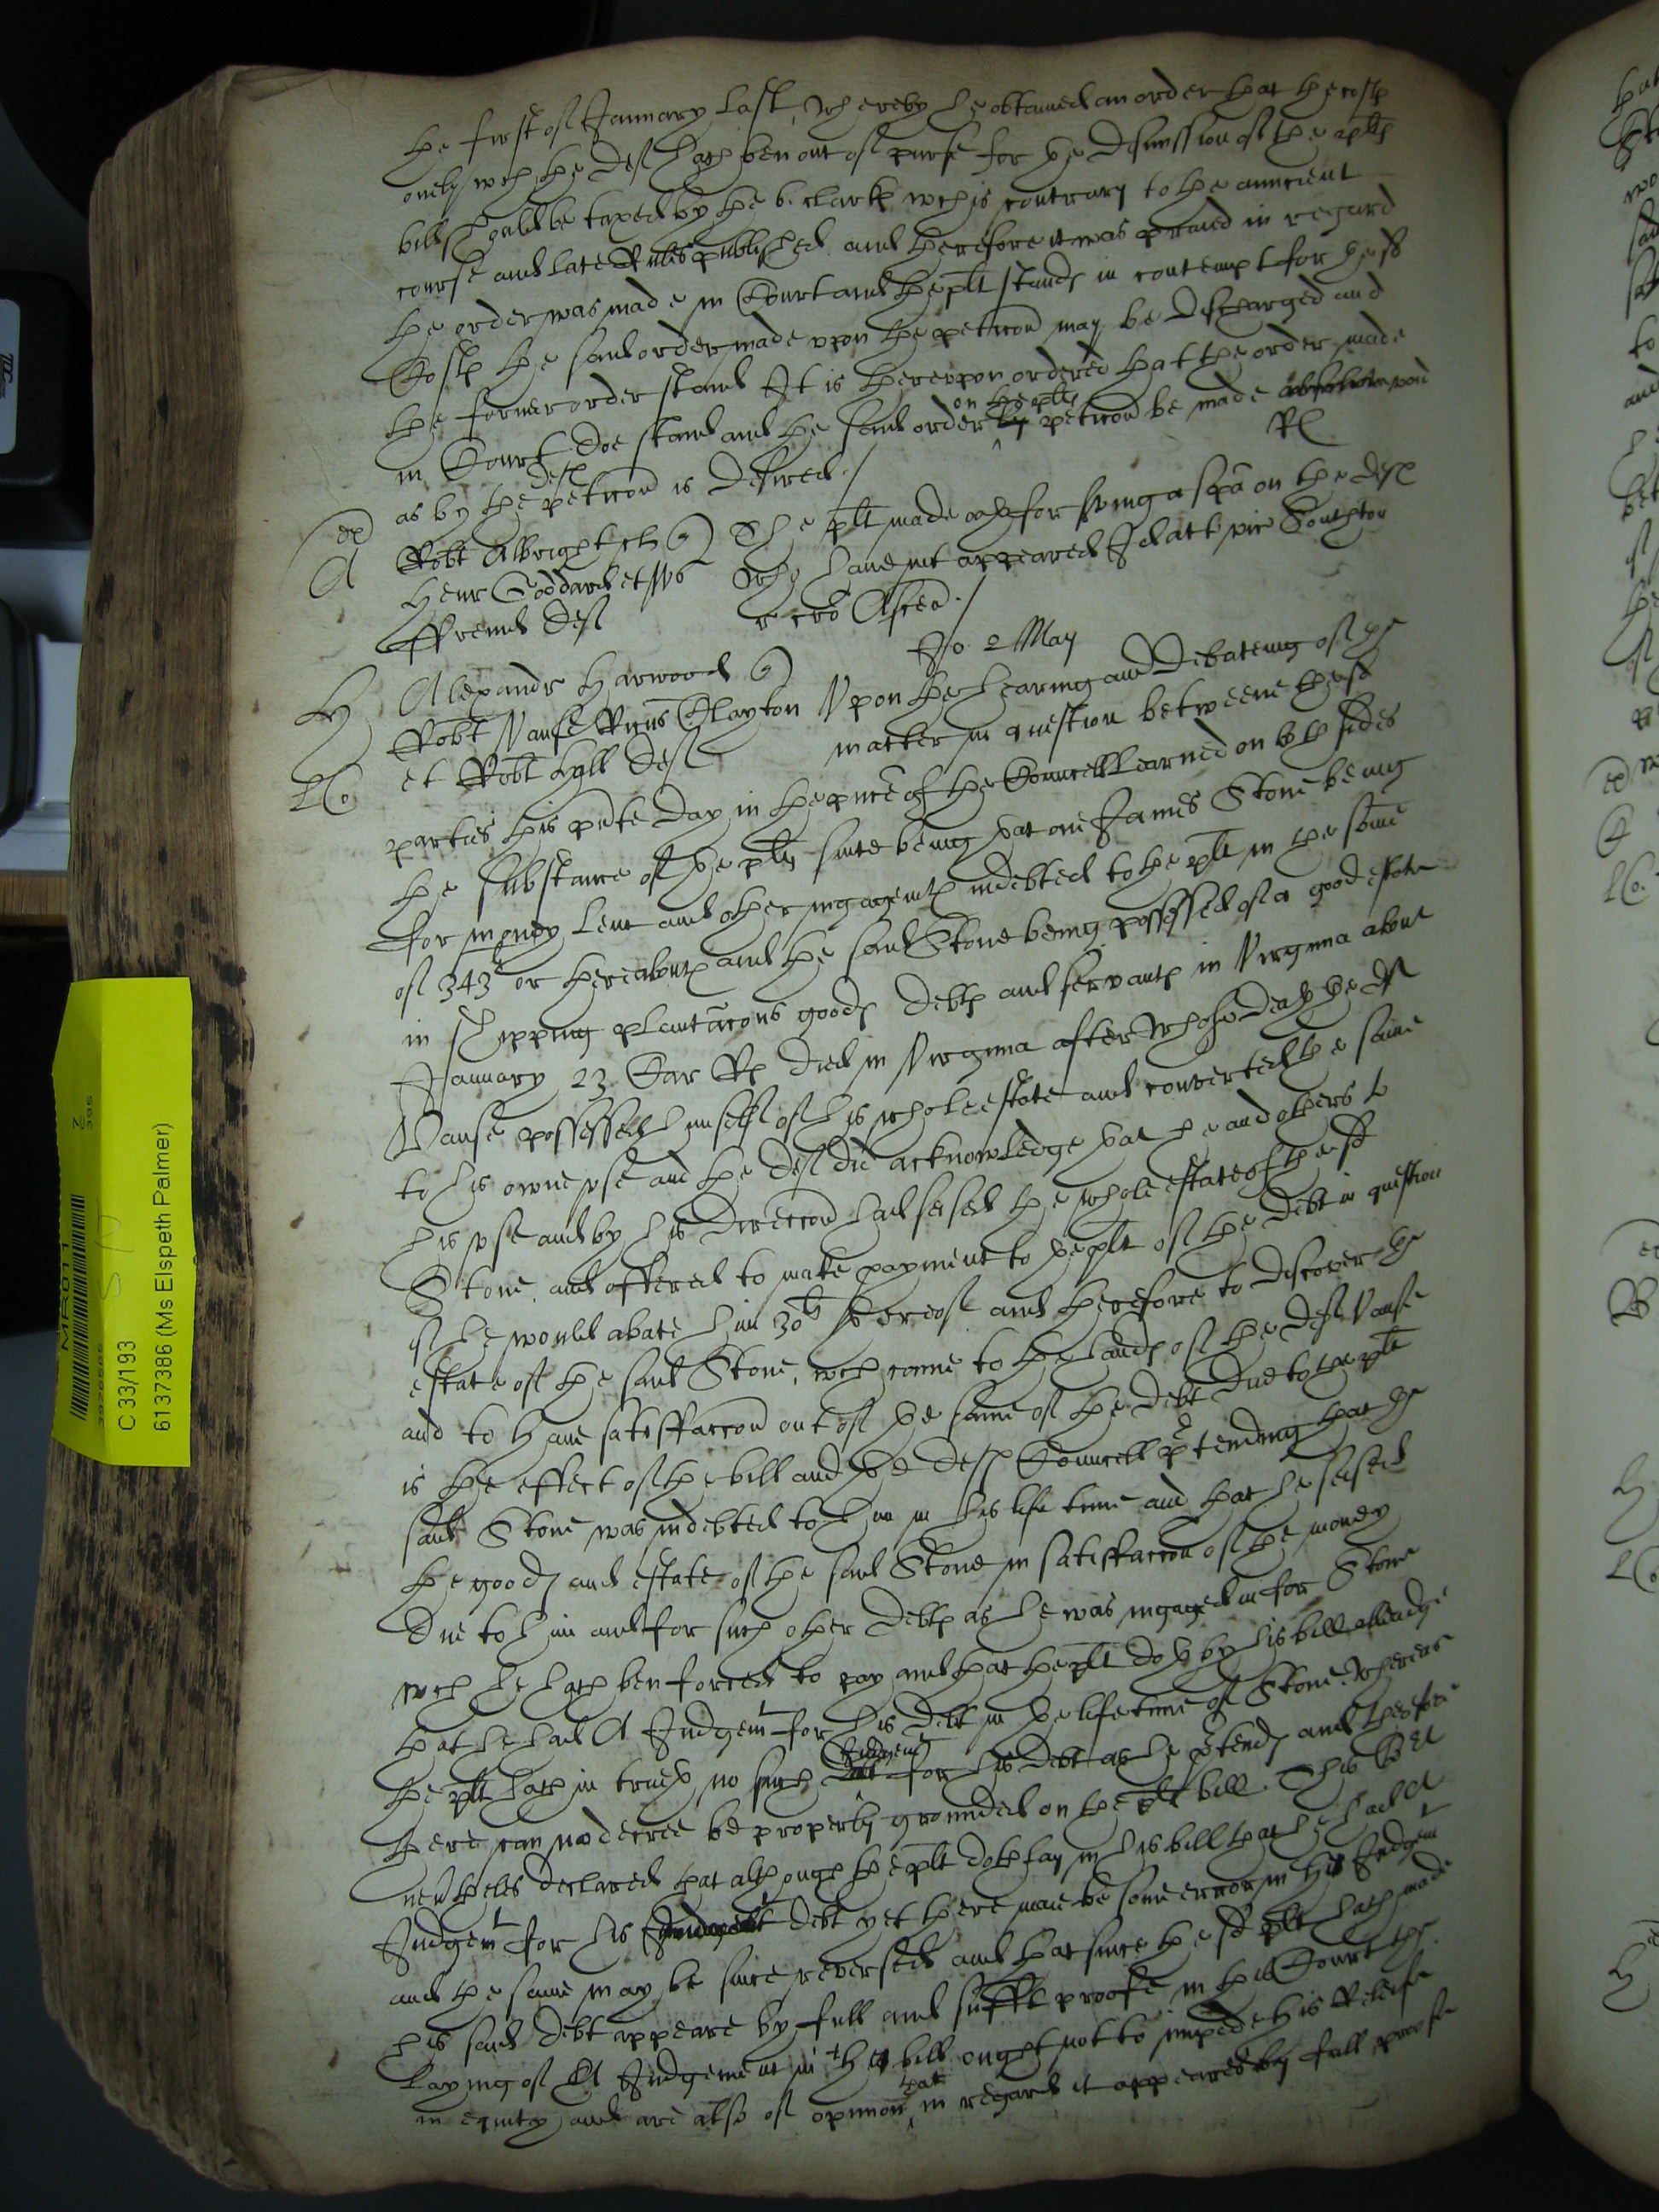 the first of January last, whereby he obtained an order that the costs
onely wch the Deft hath ben out of purse for the dismission of the plts
bill should be taxed by the 6. clark wch is contrary to the auncient
course and late Rules published and therefore it was praied in regard
the order was made in Court and the plt stands in contempt for these
Costs the said order made upon the peticon may be discharged and
the former order stand It is thereupon ordered that the order made
in Court doe stand and the said order on the plts peticon be made void
as by the Defts peticon is desired./
Rl
Robt Albright The plt made oath for serving a spa on the Defts
Henr Goddard et Ux who have not appeared Id att vic Southton
French Deft r cro Ascen./
Jo. 2 May
Alexandr Harwood
Robt Vause Clayton Upon the hearing and Debateing of the
et Robt Hyll Deft matter in question betweene these
parties this pnte day in the pnce of the Councell learned on both sides
the substance of the plts suite being that one James Stone being
for money lent and other ingagemts indebted to the plt in the some
of 343 or thereabouts and the said Stone being possessed of a good estate
in shipping plantacons goods debts and servants in Virginia about
January 23 Car Rs died in Virginia after whose death the Dft
Vause possessed himself of his whole estate and converted the same
to his owne use and the Deft did acknowledge that he and others to
his use and by his direccon had seised the whole estate of the sd
Stone, and offered to make payment to the plt of the debt in question
if he would abate him 30li thereof and therefore to discover the
estate of the said Stone, wch came to the hands of the Deft Vause
and to have satisfaccon out of the same of the debt due to the plt
is the effect of the bill and the Defts Councell ptending that the
said Stone was indebted to him in his life time and that he seised
the goods and estate of the said Stone in satisfaccon of the money
due to him and for such other debts as he was ingaged in for Stone
wch he hath ben forced to pay and that the plt doth by his bill alleadge
that he had A Judgemt for his debt in the life time of Stone, whereas
the plt hath in trueth no such Judgemt for his debt as he ptends and therefore
there can no decree be properly grounded on the plts bill. This Court
nevtheles declared that although the plt doth say in his bill that he had A
Judgemt for his debt yet there maie be some error in his Judgemt
and the same may be since reversed and that since the sd plt hath made
his said debt appeare by full and suffict proofe in this Court the
laying of A Judgement in the bill ought not to impede his Releife
in equity and are also of opinion that in regard it appeares by full proofe
MR011
C 33/193
6137386 (Ms Elspeth Palmer)